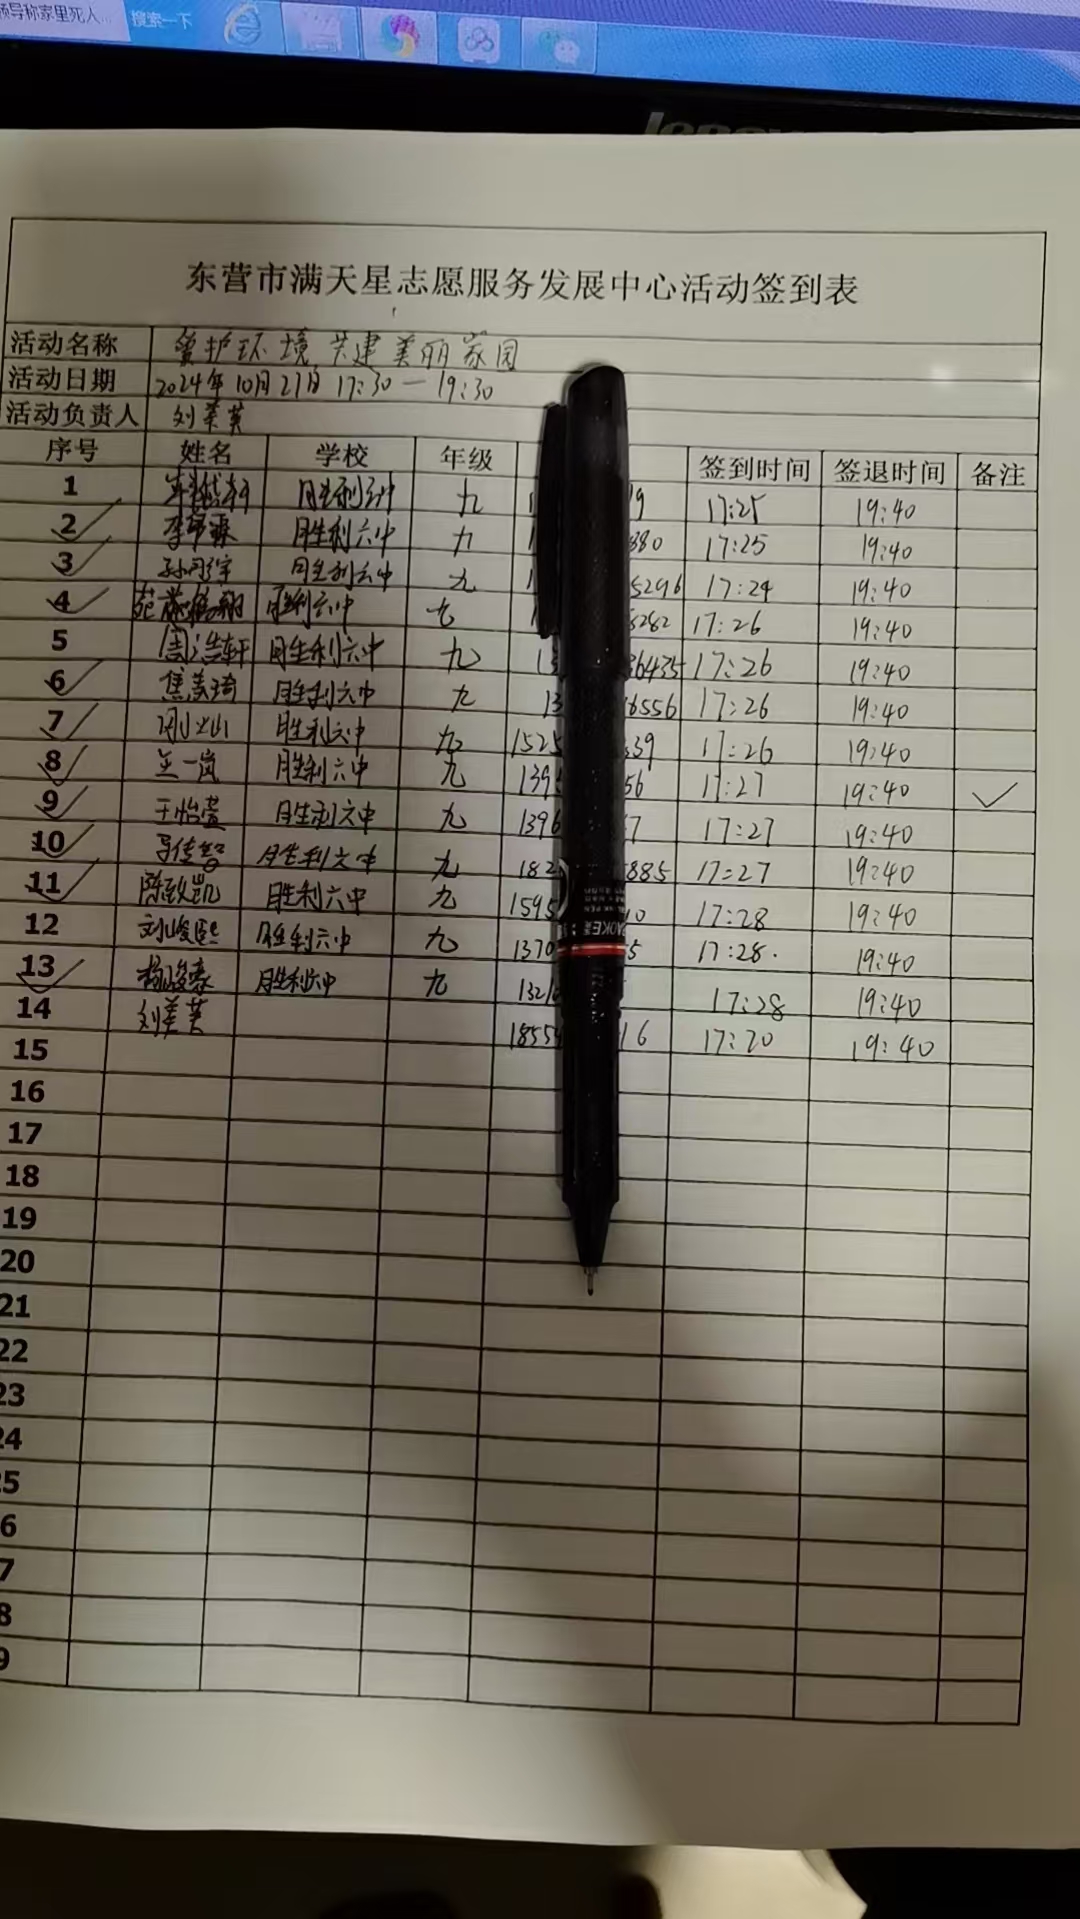 领导称家里死人... 搜索一下
lenovo
东营市满天星志愿服务发展中心活动签到表
活动名称 爱护环境 共建美丽家园
活动日期 2024年10月21日 17:30—19:30
活动负责人 刘美芙
序号 姓名 学校 年级 签到时间 签退时间 备注
1 胜利六中 九 1 19 17:25 19:40
2 ✓ 胜利六中 九 1 880 17:25 19:40
3 ✓ 胜利六中 九 1 5296 17:24 19:40
4 ✓ 胜利六中 九 1 8282 17:26 19:40
5 周浩轩 胜利六中 九 13 36435 17:26 19:40
6 ✓ 焦美琦 胜利六中 九 13 6556 17:26 19:40
7 ✓ 胜利六中 九 1525 339 17:26 19:40
8 ✓ 王一岚 胜利六中 九 139 56 17:27 19:40 ✓
9 ✓ 于怡萱 胜利六中 九 1396 7 17:27 19:40
10 ✓ 马传智 胜利六中 九 182 885 17:27 19:40
11 ✓ 陈致凯 胜利六中 九 1595 10 17:28 19:40
12 刘峻熙 胜利六中 九 1370 5 17:28. 19:40
13 ✓ 杨骏豪 胜利六中 九 1321 17:28 19:40
14 刘美芙 1855 16 17:20 19:40
15
16
17
18
19
20
21
22
23
24
5
6
7
8
9